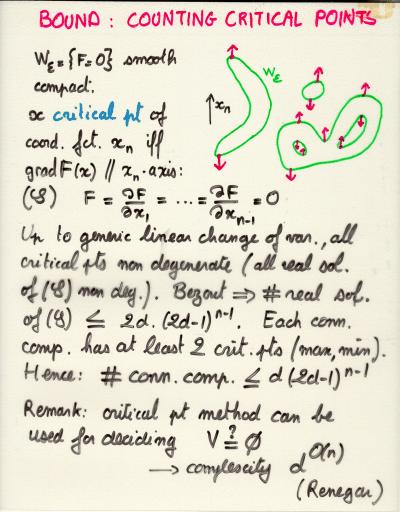 BOUND : COUNTING CRITICAL POINTS
Wε = {F=0} smooth
compact.
x critical pt of
coord. fct. xn iff
grad F(x) // xn-axis:
(S) F = ∂F/∂x1 = ... = ∂F/∂xn-1 = 0
↑xn
Wε
Up to generic linear change of var., all
critical pts non degenerate (all real sol.
of (S) non deg.). Bezout ⇒ # real sol.
of (S) ≤ 2d. (2d-1)^n-1. Each conn.
comp. has at least 2 crit. pts (max, min).
Hence: # conn. comp. ≤ d (2d-1)^n-1
Remark: critical pt method can be
used for deciding V ≟ ∅
→ complexity d^O(n)
(Renegar)